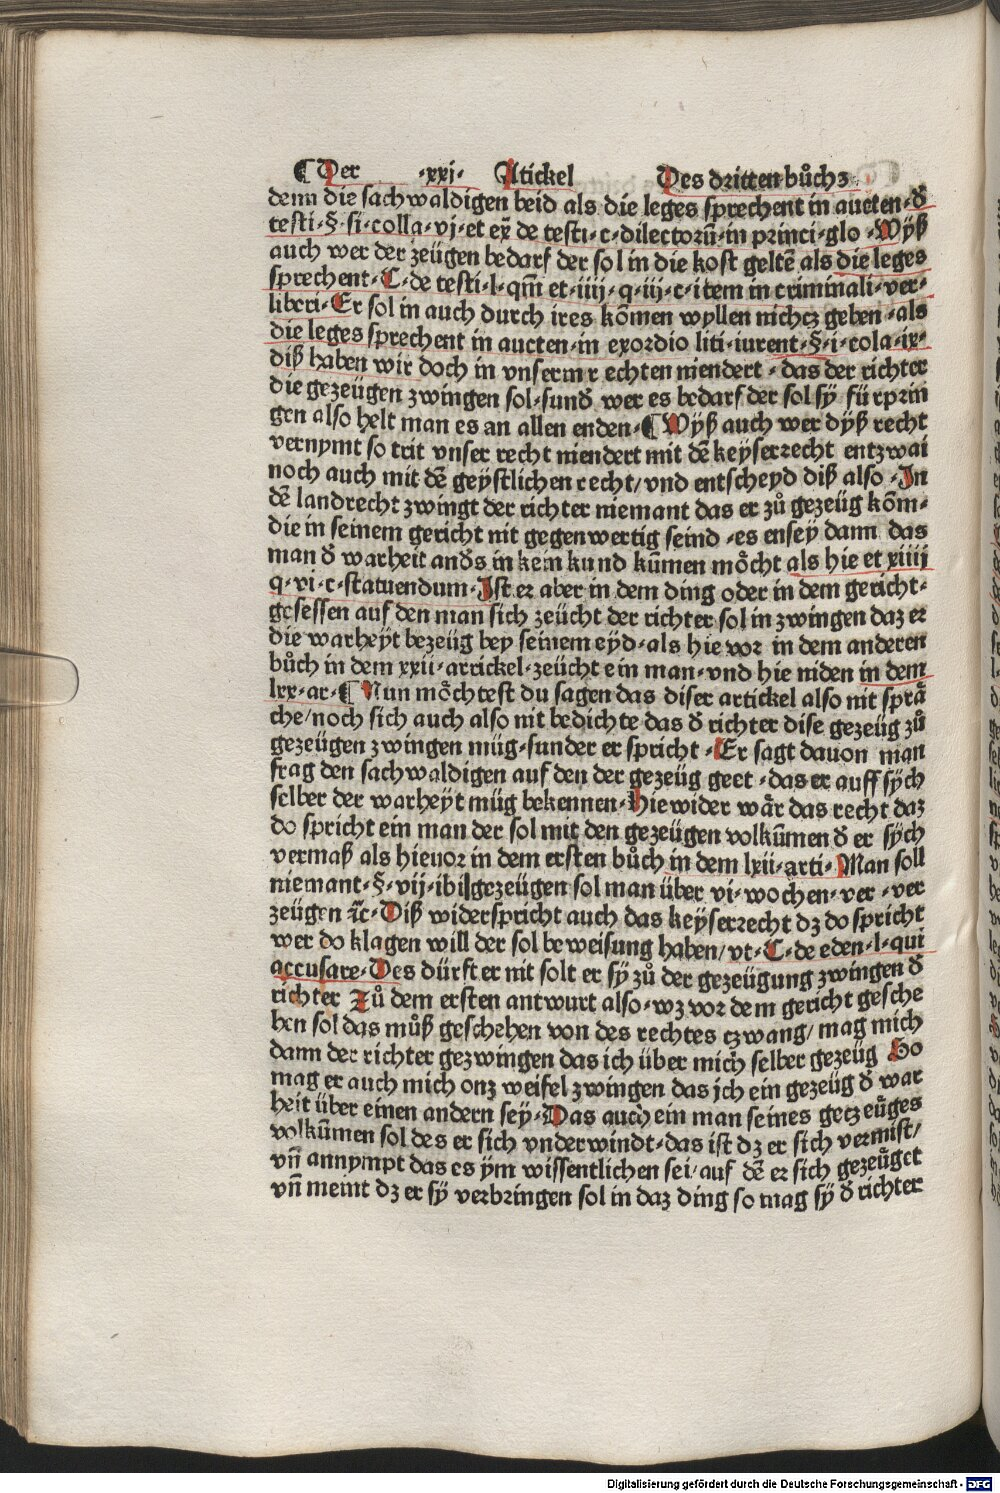 ¶ Der ·xxj· Atickel Des dritten bůchz·
denn die sachwaldigen beid als die leges sprechent in aucten·đ
testi·§·si·colla·vj·et ex̄ de testi·c·dilectorū·in princi·glo·Wÿß
auch wer der zeügen bedarf der sol in die kost geltē als die leges
sprechent·C·de testi·l·qm̄ et·iiij·q·iij·c·item in criminali·ver·
liberi·Er sol in auch durch ires kōmen wyllen nichcz geben·als
die leges sprechent in aucten·in exordio liti·iurent·§·i·cola·ix·
diß haben wir doch in vnserm r echten niendert·das der richter
die gezeügen zwingen sol·sunđ wer es bedarf der sol sÿ fürprin
gen also helt man es an allen enden·¶ Wÿß auch wer dÿß recht
vernymt so trit vnser recht niendert mit dē keÿserrecht entzwai
noch auch mit dē geÿstlichen recht/vnd entscheyd diß also·In
dē landrecht zwingt der richter niemant das er zů gezeüg kōm·
die in seinem gericht nit gegenwertig seind·es ensey dann das
man đ warheit andß in kein kund kūmen mo̊cht als hie et xiiii
q·vi·c·statuendum·Ist er aber in dem ding oder in dem gericht·
gesessen auf den man sich zeücht der richter sol in zwingen daz er
die warheÿt bezeüg bey seinem eyd·als hie vor in dem anderen
bůch in dem xxii·arrickel·zeücht ein man·vnd hie niden in dem
lxx·ar·¶ Nun mo̊chtest du sagen das diser artickel also nit språ
che/noch sich auch also nit bedichte·das đ richter dise gezeüg zů
gezeügen zwingen müg·sunder er spricht·Er sagt dauon man
frag den sachwaldigen auf den der gezeüg geet·das er auff sÿch
selber der warheÿt müg bekennen·Hiewider wår das recht daz
do spricht ein man der sol mit den gezeügen volkūmen đ er sÿch
vermaß als hieuor in dem ersten bůch in dem lxii·arti·Man soll
niemant·§·vij·ibi|gezeügen sol man über vi·wochen·ver·ver
zeügen ꝛc̄·Diß widerspricht auch das keÿserrecht dz do spricht
wer do klagen will der sol beweisung haben/vt·C·de eden·l·qui
accusare·Des dürft er nit solt er sÿ zů der gezeügung zwingen đ
richter Zů dem ersten antwurt also·wz vor dem gericht gesche
hen sol das můß geschehen von des rechtes czwang/mag mich
dann der richter gezwingen das ich über mich selber gezeüg So
mag er auch mich onz weifel zwingen das jch ein gezeüg đ war
heit über einen andern sey·Das auch ein man seines getzeüges
volkūmen sol des er sich vnderwindt·das ist dz er sich vermist/
vn̄ annympt das es ÿm wissentlichen sei/auf dē er sich gezeüget
vn̄ meint dz er sÿ verbringen sol in daz ding so mag sÿ đ richter
Digitalisierung gefördert durch die Deutsche Forschungsgemeinschaft - DFG